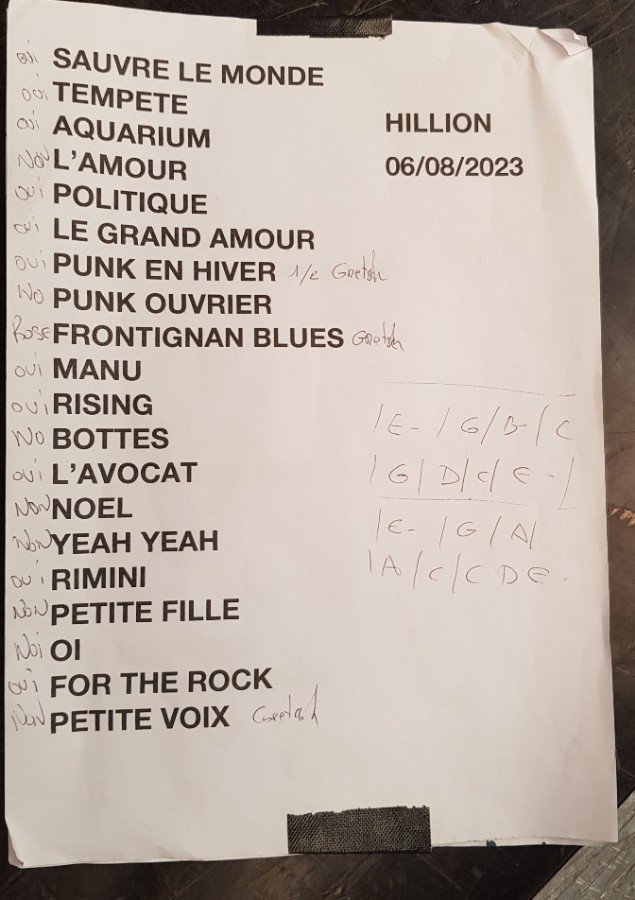 oui SAUVRE LE MONDE
oui TEMPETE
oui AQUARIUM
HILLION
NON L'AMOUR
06/08/2023
oui POLITIQUE
oui LE GRAND AMOUR
oui PUNK EN HIVER 1/2 Gretsh
NO PUNK OUVRIER
FRONTIGNAN BLUES Gretsh
oui MANU
oui RISING
NO BOTTES
/ E- / G / B- / C
oui L'AVOCAT
| G | D | C | E - |
NON NOEL
| E- | G / A |
NON YEAH YEAH
oui RIMINI
| A / C / C D E .
NON PETITE FILLE
OI
oui FOR THE ROCK
NON PETITE VOIX Gretsh